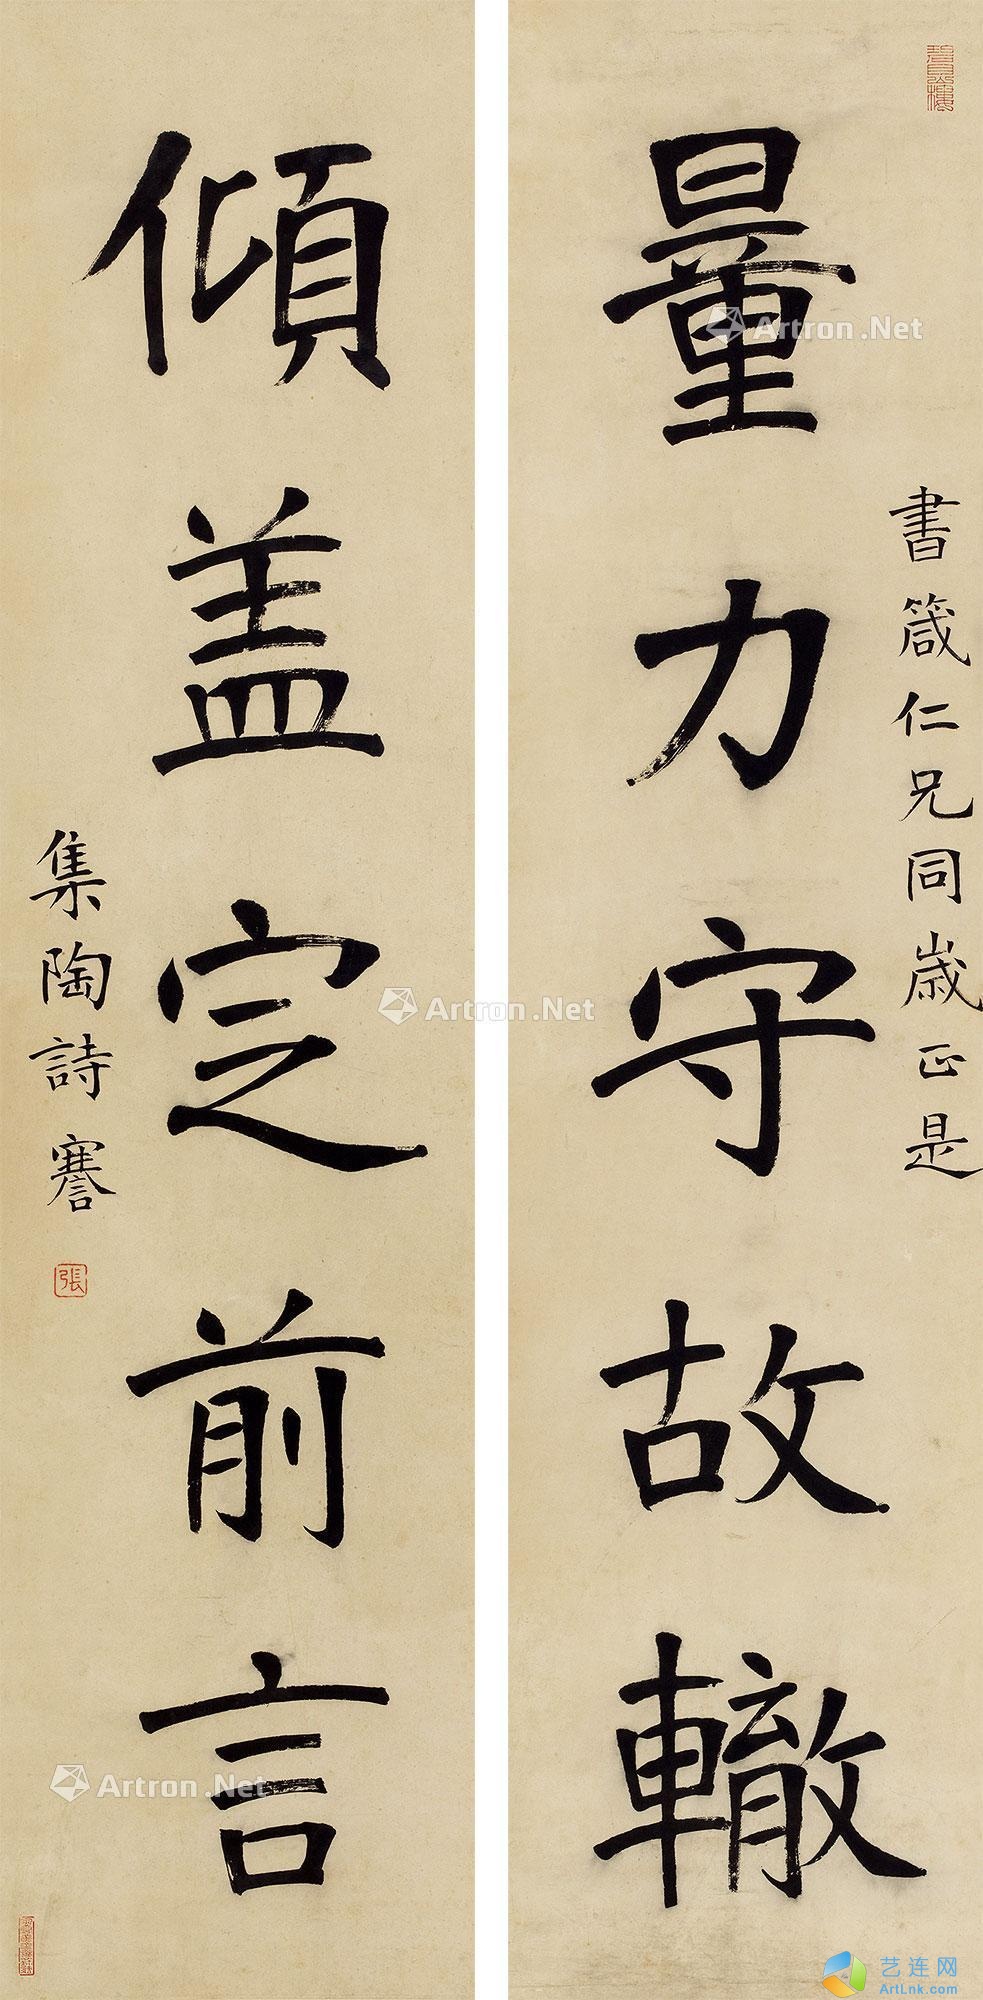 書箴仁兄同歲正是
量力守故轍
傾盖定前言
集陶詩謇
張
Artron.Net
Artron.Net
Artron.Net
艺连网
ArtLnk.com